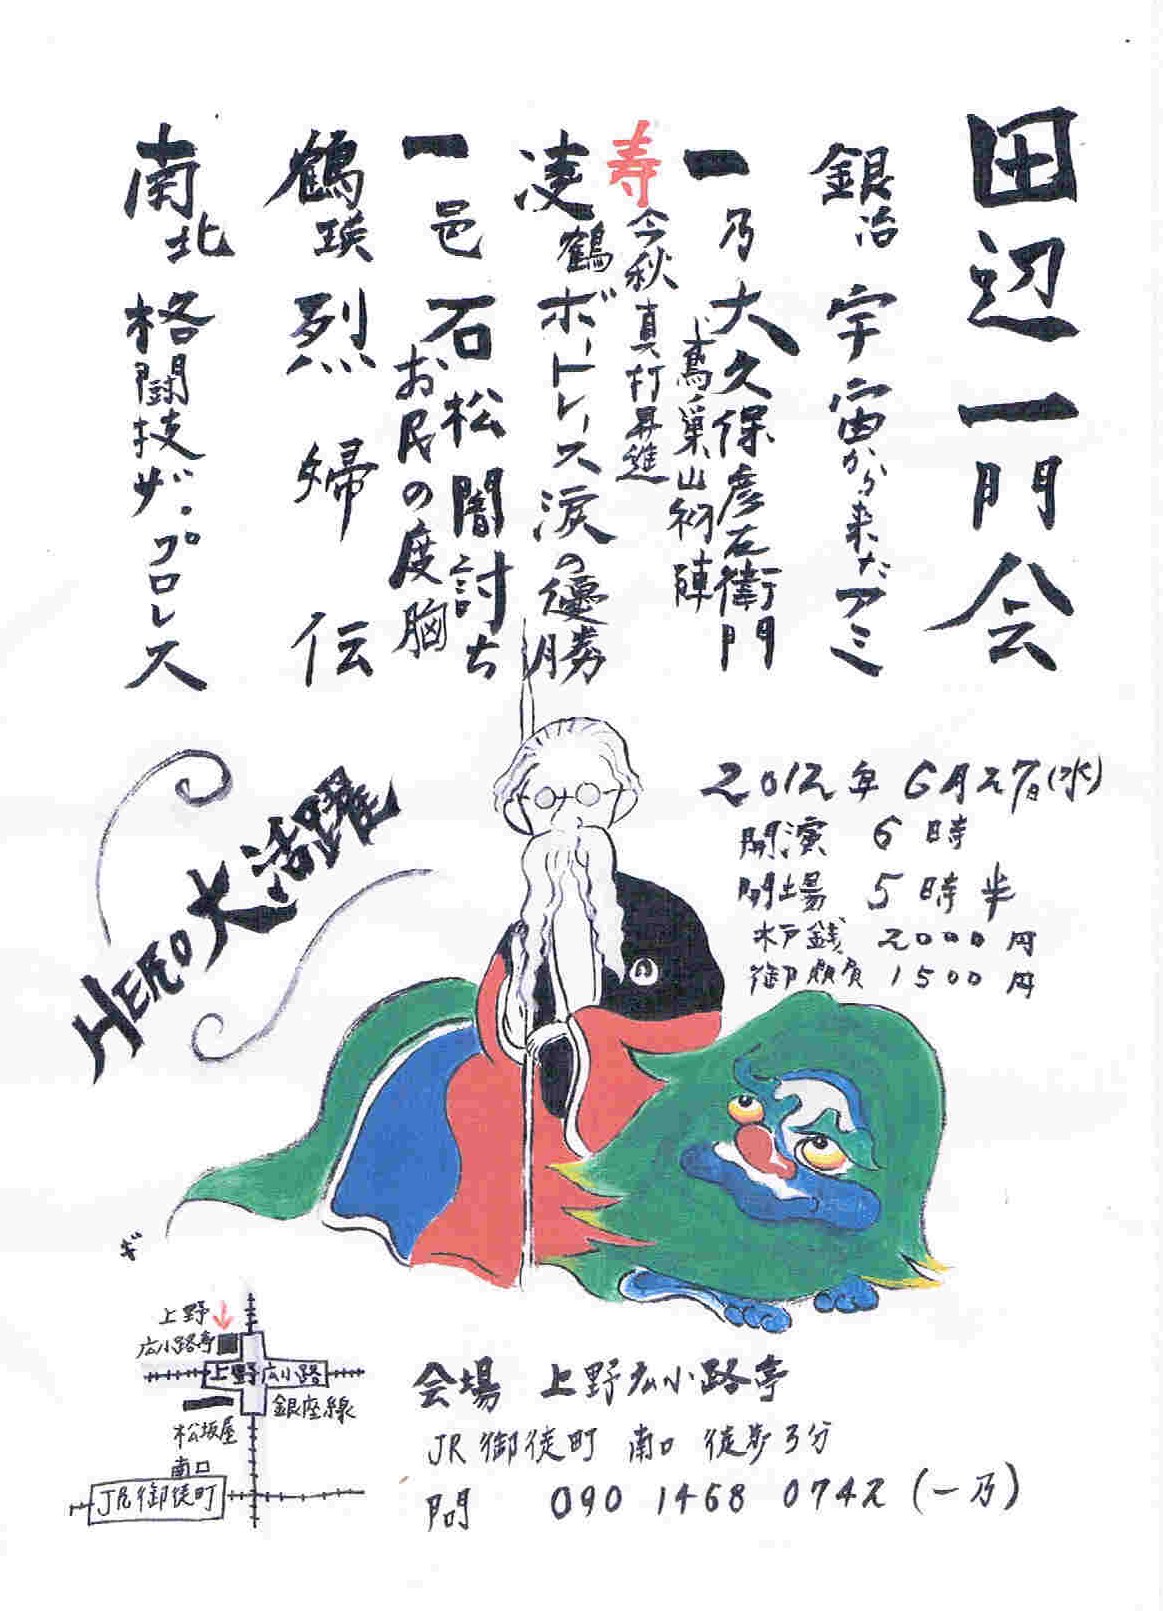 田辺一門会
銀冶 宇宙から来たアミ
一乃 大久保彦左衛門
〜鳶ノ巣山初陣
寿 今秋真打昇進
凌鶴 ボートレース涙の優勝
一邑 石松闇討ち
お民の度胸
鶴瑛 烈婦伝
南北 格闘技ザ・プロレス
HERO大活躍
2012年6月27日(水)
開演 6時
開場 5時半
木戸銭 2000円
御贔屓 1500円
ギ
上野
広小路亭
上野広小路
銀座線
松坂屋
南口
JR御徒町
会場 上野広小路亭
JR御徒町 南口 徒歩3分
問 090 1468 0742 (一乃)